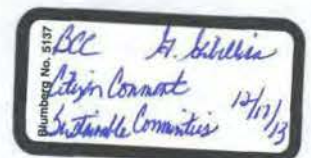 Blumberg No. 5137
BCC G.
Citizen Comment
Sustainable Communities
12/17/13